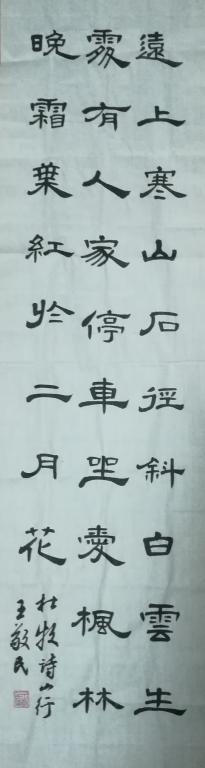 遠上寒山石徑斜白雲生
處有人家停車坐愛楓林
晚霜葉紅於二月花
杜牧诗山行
王敬民